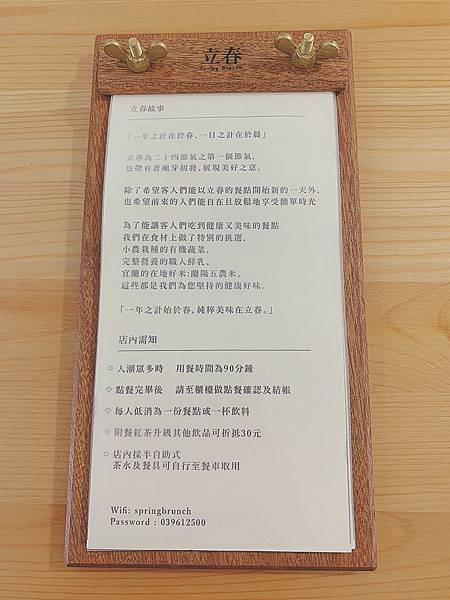 立春
Spring Brunch
立春故事
「一年之計在於春、一日之計在於晨」
立春為二十四節氣之第一個節氣，
也帶有著嫩芽初發、展現美好之意。
除了希望客人們能以立春的餐點開始新的一天外，
也希望前來的人們能自在且放鬆地享受簡單時光
為了能讓客人們吃到健康又美味的餐點
我們在食材上做了特別的挑選，
小農栽種的有機蔬菜、
完整營養的職人鮮乳、
宜蘭的在地好米:蘭陽五農米。
這些都是我們為您堅持的健康好味。
「一年之計始於春，純粹美味在立春。」
店內需知
☼ 人潮眾多時 用餐時間為90分鐘
☼ 點餐完畢後 請至櫃檯做點餐確認及結帳
☼ 每人低消為一份餐點或一杯飲料
☼ 附餐紅茶升級其他飲品可折抵30元
☼ 店內採半自助式
茶水及餐具可自行至餐車取用
Wifi: springbrunch
Password : 039612500